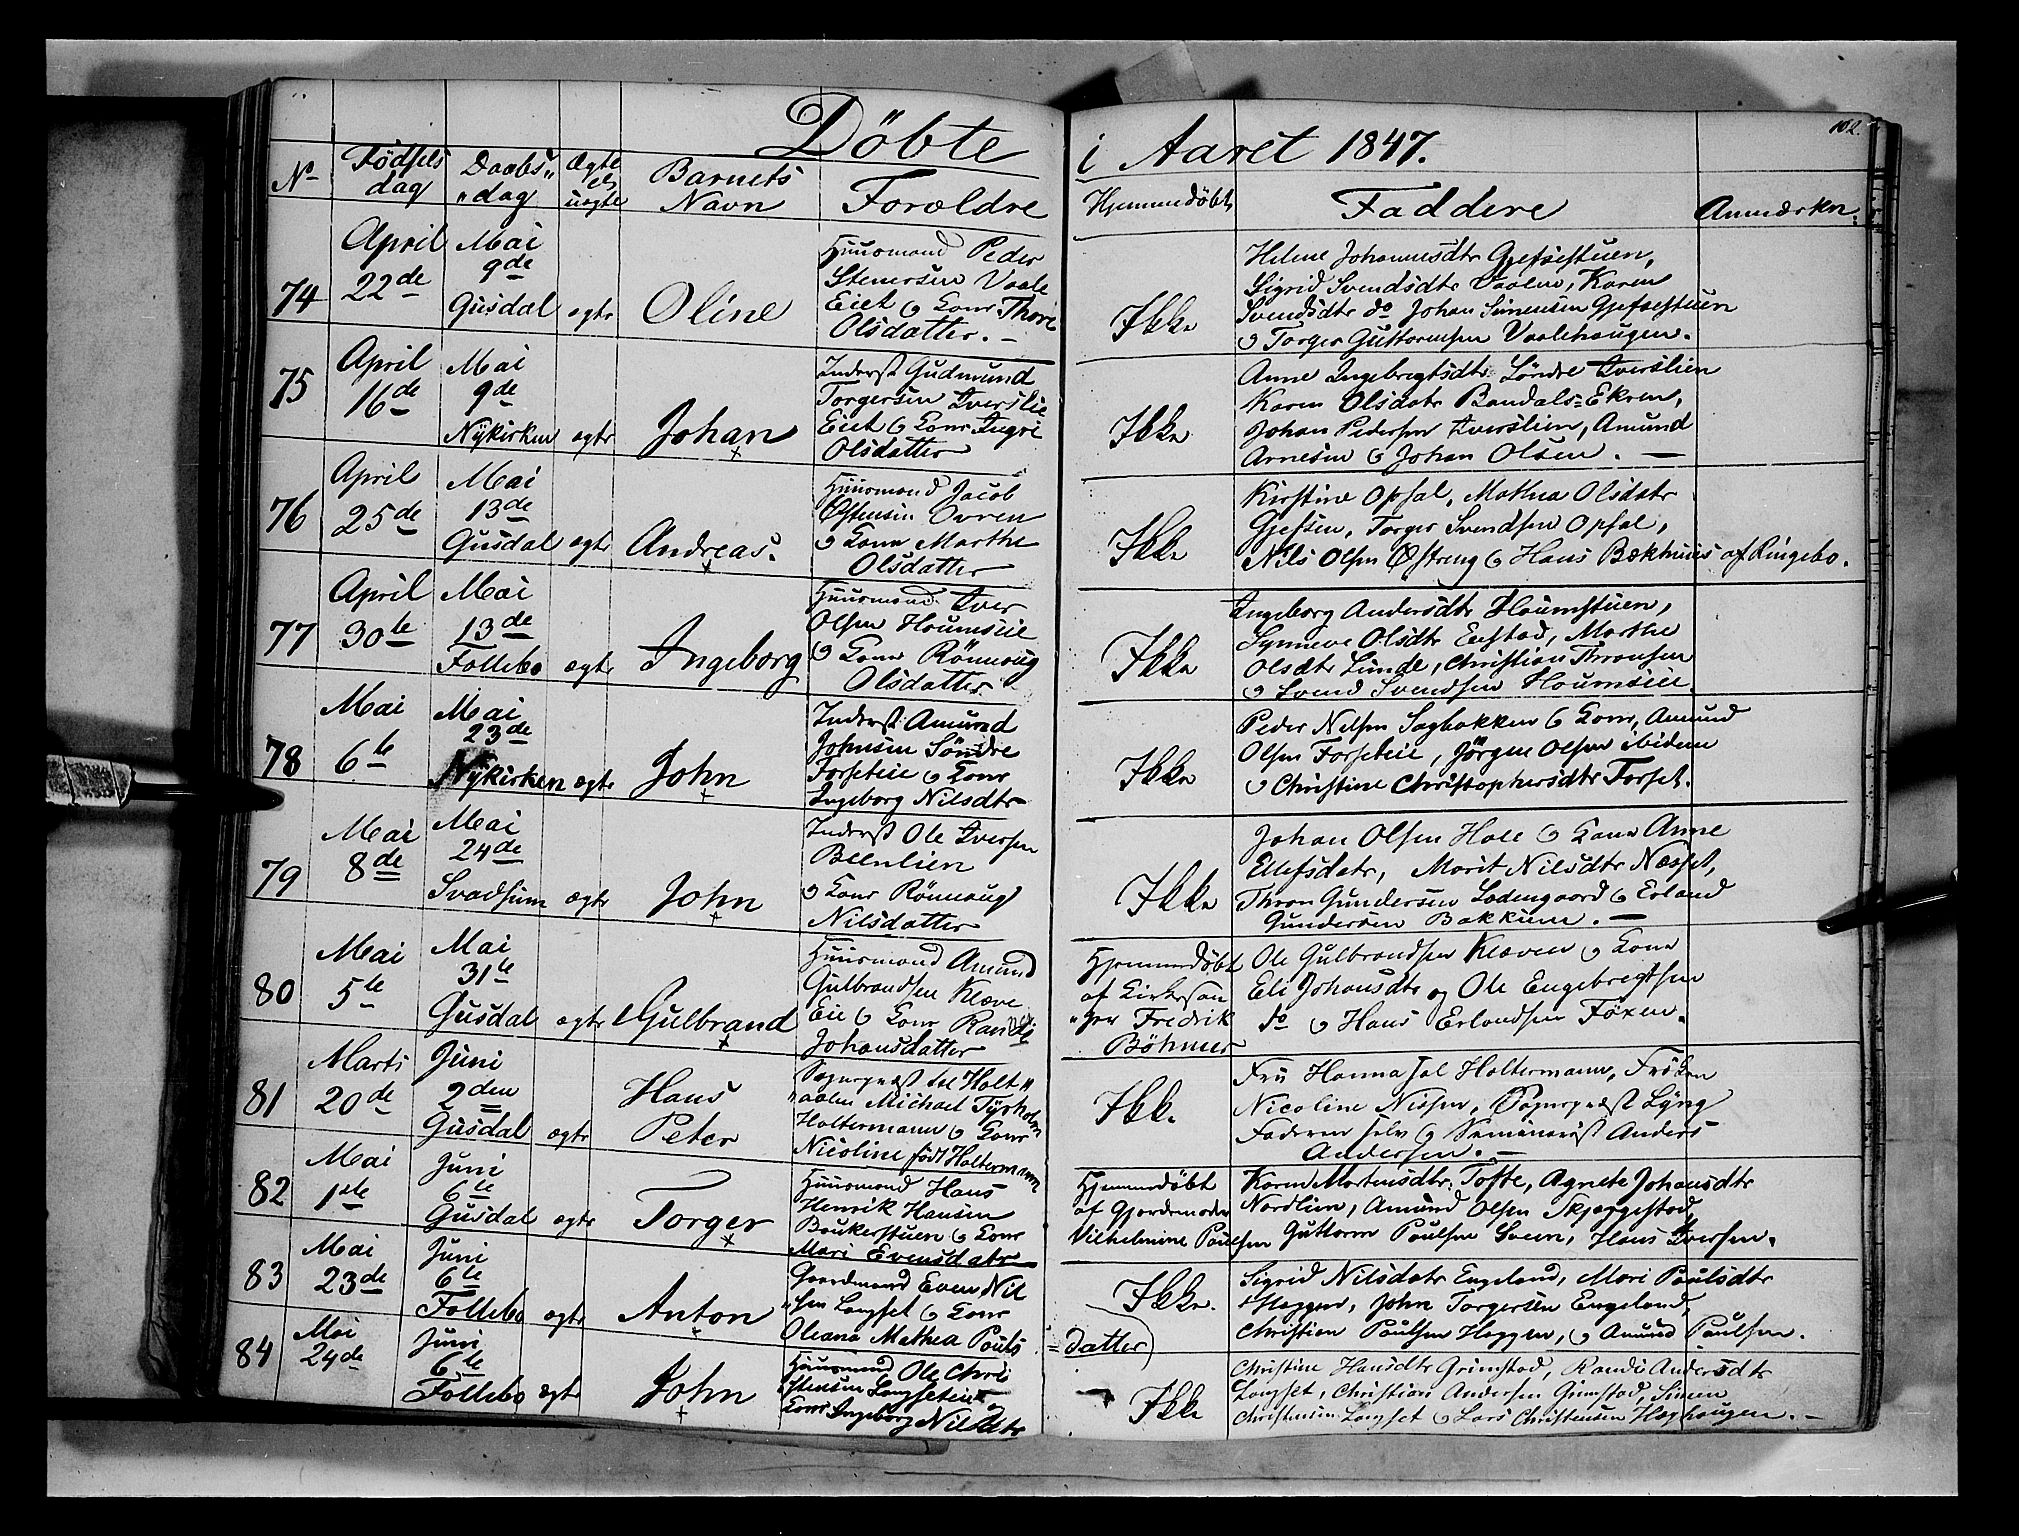 102.
Döbte i Aaret 1847.
No Födsels dag Daabs dag Ægte el uægte Barnets Navn Forældre Hjemmedöbt Faddere Anmærkn.
74 April 22de Mai 9de Gusdal ægte Oline
Huusmand Peder
Stenersen Vaale
Eiet & Kone Thore
Olsdatter.
Ikke
Helene Johannesdtr Gjefsestuen,
Sigrid Svendsdtr Vaalen, Karen
Svendsdtr do Johan Simensen Gjefsestuen
& Torger Guttormsen Vaalehaugen.
75 April 16de Mai 9de Nykirken ægte Johan
Inderst Gudmund
Torgersen Iverslie
Eiet & Kone Ingri
Olsdatter
Ikke
Anne Ingebregtsdtr Söndre Iverslien
Karen Olsdatr Bandals-Ekren,
Johan Pedersen Iverslien, Amund
Arnesen & Johan Olsen.
76 April 25de Mai 13de Gusdal ægte Andreas.
Huusmand Jacob
Östensen Ovren
& Kone Marthe
Olsdatter
Ikke
Kirstine Opsal, Mathea Olsdatr
Gjefsen, Torger Svendsen Opsal,
Nils Olsen Østreng & Hans Bækhuus af Ringebo.
77 April 30te Mai 13de Follebo ægte Ingeborg
Huusmand Iver
Olsen Houmseie
& Kone Rönnoug
Olsdatter
Ikke
Ingeborg Andersdtr Houmstuen,
Synneve Olsdtr Enstad, Marthe
Olsdtr Linde, Christian Thronsen
& Svend Svendsen Houmseie
78 Mai 6te Mai 23de Nykirken ægte John
Inderst Amund
Johnsen Söndre
Forseteie & Kone
Ingeborg Nilsdtr
Ikke
Peder Nilsen Sagbakken & Kone, Amund
Olsen Forseteie, Jörgen Olsen ibidem
& Christine Christophersdtr Forset.
79 Mai 8de Mai 24de Svadsum ægte John
Inderst Ole Iversen
Beenlien
& Kone Rönnoug
Nilsdatter
Ikke
Johan Olsen Hole & Kone Anne
Ellefsdatr, Marit Nilsdtr Næsset,
Thron Gundersen Ladengaard & Erland
Gundersen Bakkum.
80 Mai 5te Mai 31te Gusdal ægte Gulbrand
Huusmand Amund
Gulbrandsen Kleve
Eie & Kone Randi
Johansdatter
Hjemmedöbt
af Kirkesan
ger Fredrik
Böhmer
Ole Gulbrandsen Kleven & Kone
Eli Johansdtr og Ole Engebregtsen
do & Hans Erlandsen Föxen.
81 Marts 20de Juni 2den Gusdal ægte Hans Peter
Sogneprest til Holt
aalen Michael Tyrholm
Holtermann & Kone
Nicoline födt Holtermann
Ikke
Fru Hanna Holtermann, Fröken
Nicoline Nissen, Sogneprest Lyng
Faderen selv & Seminarist Anders
Andersen.
82 Mai 1ste Juni 6te Gusdal ægte Torger
Huusmand Hans
Henrik Hansen
Baukerstuen & Kone
Mari Evensdatr
Hjemmedöbt
af Gjordemoder
Vilhelmine Paulsen
Karen Mortensdtr Tofte, Agnete Johansdtr
Nordlien, Amund Olsen Skjæggestad,
Guttorm Paulsen Sveen, Hans Iversen.
83 Mai 23de Juni 6te Follebo ægte Anton
Gaardmand Even Nil
sen Langset & Kone
Oleana Mathea Pouls
datter
Ikke.
Sigrid Nilsdatr Engeland, Mari Paulsdtr
Haggen, John Torgersen Engeland,
Christian Paulsen Haggen, & Amund Paulsen.
84 Mai 24de Juni 6te Follebo ægte John
Huusmand Ole Chri
stensen Langseteie &
Kone Ingeborg Nilsdtr
Ikke
Christine Hansdtr Grimstad, Randi Andersdtr
Langset, Christian Andersen Grimstad, Simen
Christensen Langset & Lars Christensen Haghaugen.